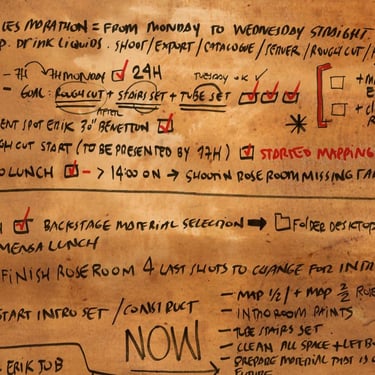 LES MARATHON = FROM MONDAY TO WEDNESDAY STRAIGHT
P. DRINK LIQUIDS. SHOOT/EXPORT/CATALOGUE/SERVER/ROUGHCUT/
- 7H 7H MONDAY 24H TUESDAY OK ✓
- GOAL: ROUGHCUT + STAIRS SET + TUBE SET
AFTER
ENT SPOT ERIK 30" BENETTON
GH CUT START (TO BE PRESENTED BY 17H) STARTED MAPPING
O LUNCH -> 14:00 ON → SHOOTIN ROSE ROOM MISSING
BACKSTAGE MATERIAL SELECTION → FOLDER DESKTOP
MENSA LUNCH
FINISH ROSE ROOM 4 LAST SHOTS TO CHANGE FOR INT
START INTRO SET / CONSTRUCT
- MAP 1/2 + MAP 2/2 ROSE
- INTRO ROOM PAINTS
- TUBE STAIRS SET
- CLEAN ALL SPACE +
- PREPARE MATERIAL THAT IS
FUTURE
NOW
. ERIK JOB